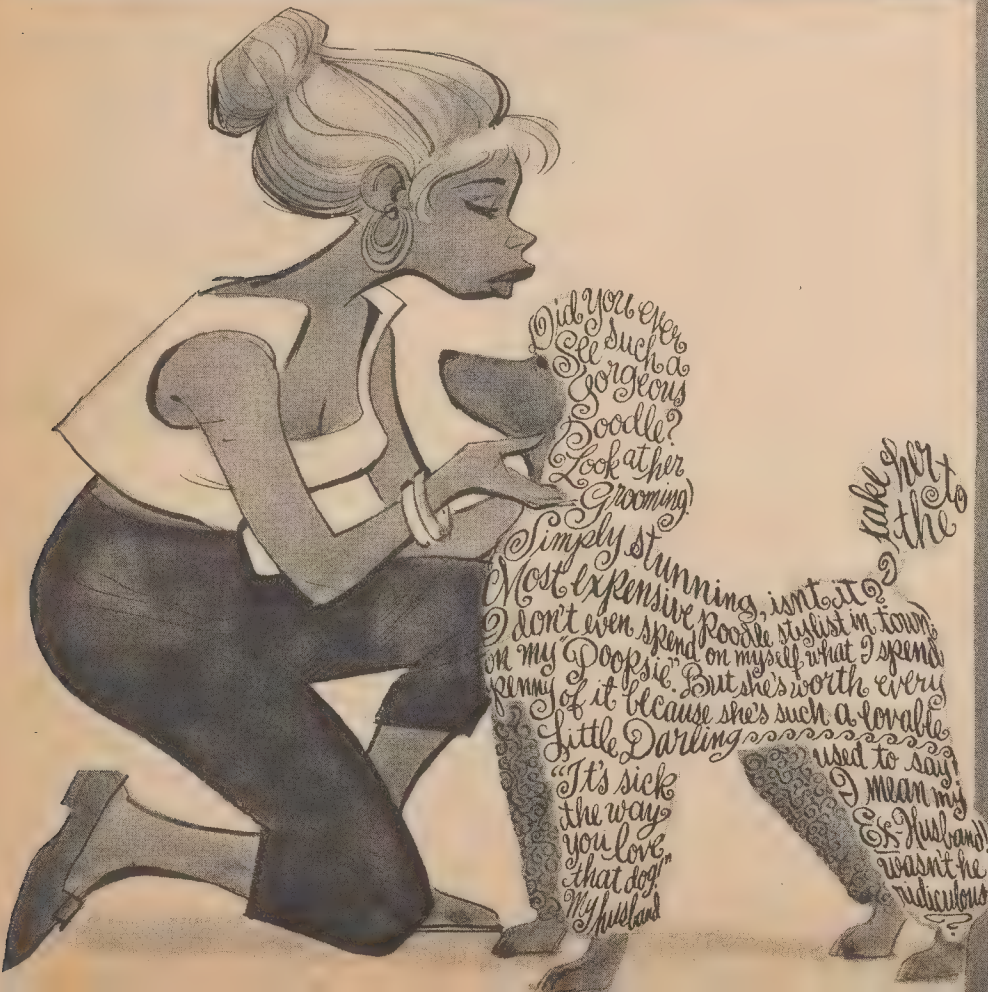 Did you ever
See such a
Gorgeous
Poodle?
Look at her
Grooming!
Simply stunning, isn't it?
I take her to
the
Most expensive Poodle stylist in town!
I don't even spend on myself what I spend
on my "Poopsie". But she's worth every
penny of it because she's such a lovable
Little Darling
"It's sick
the way
you love
that dog!"
My husband
used to say!
I mean my
Ex-Husband!
wasn't he
ridiculous